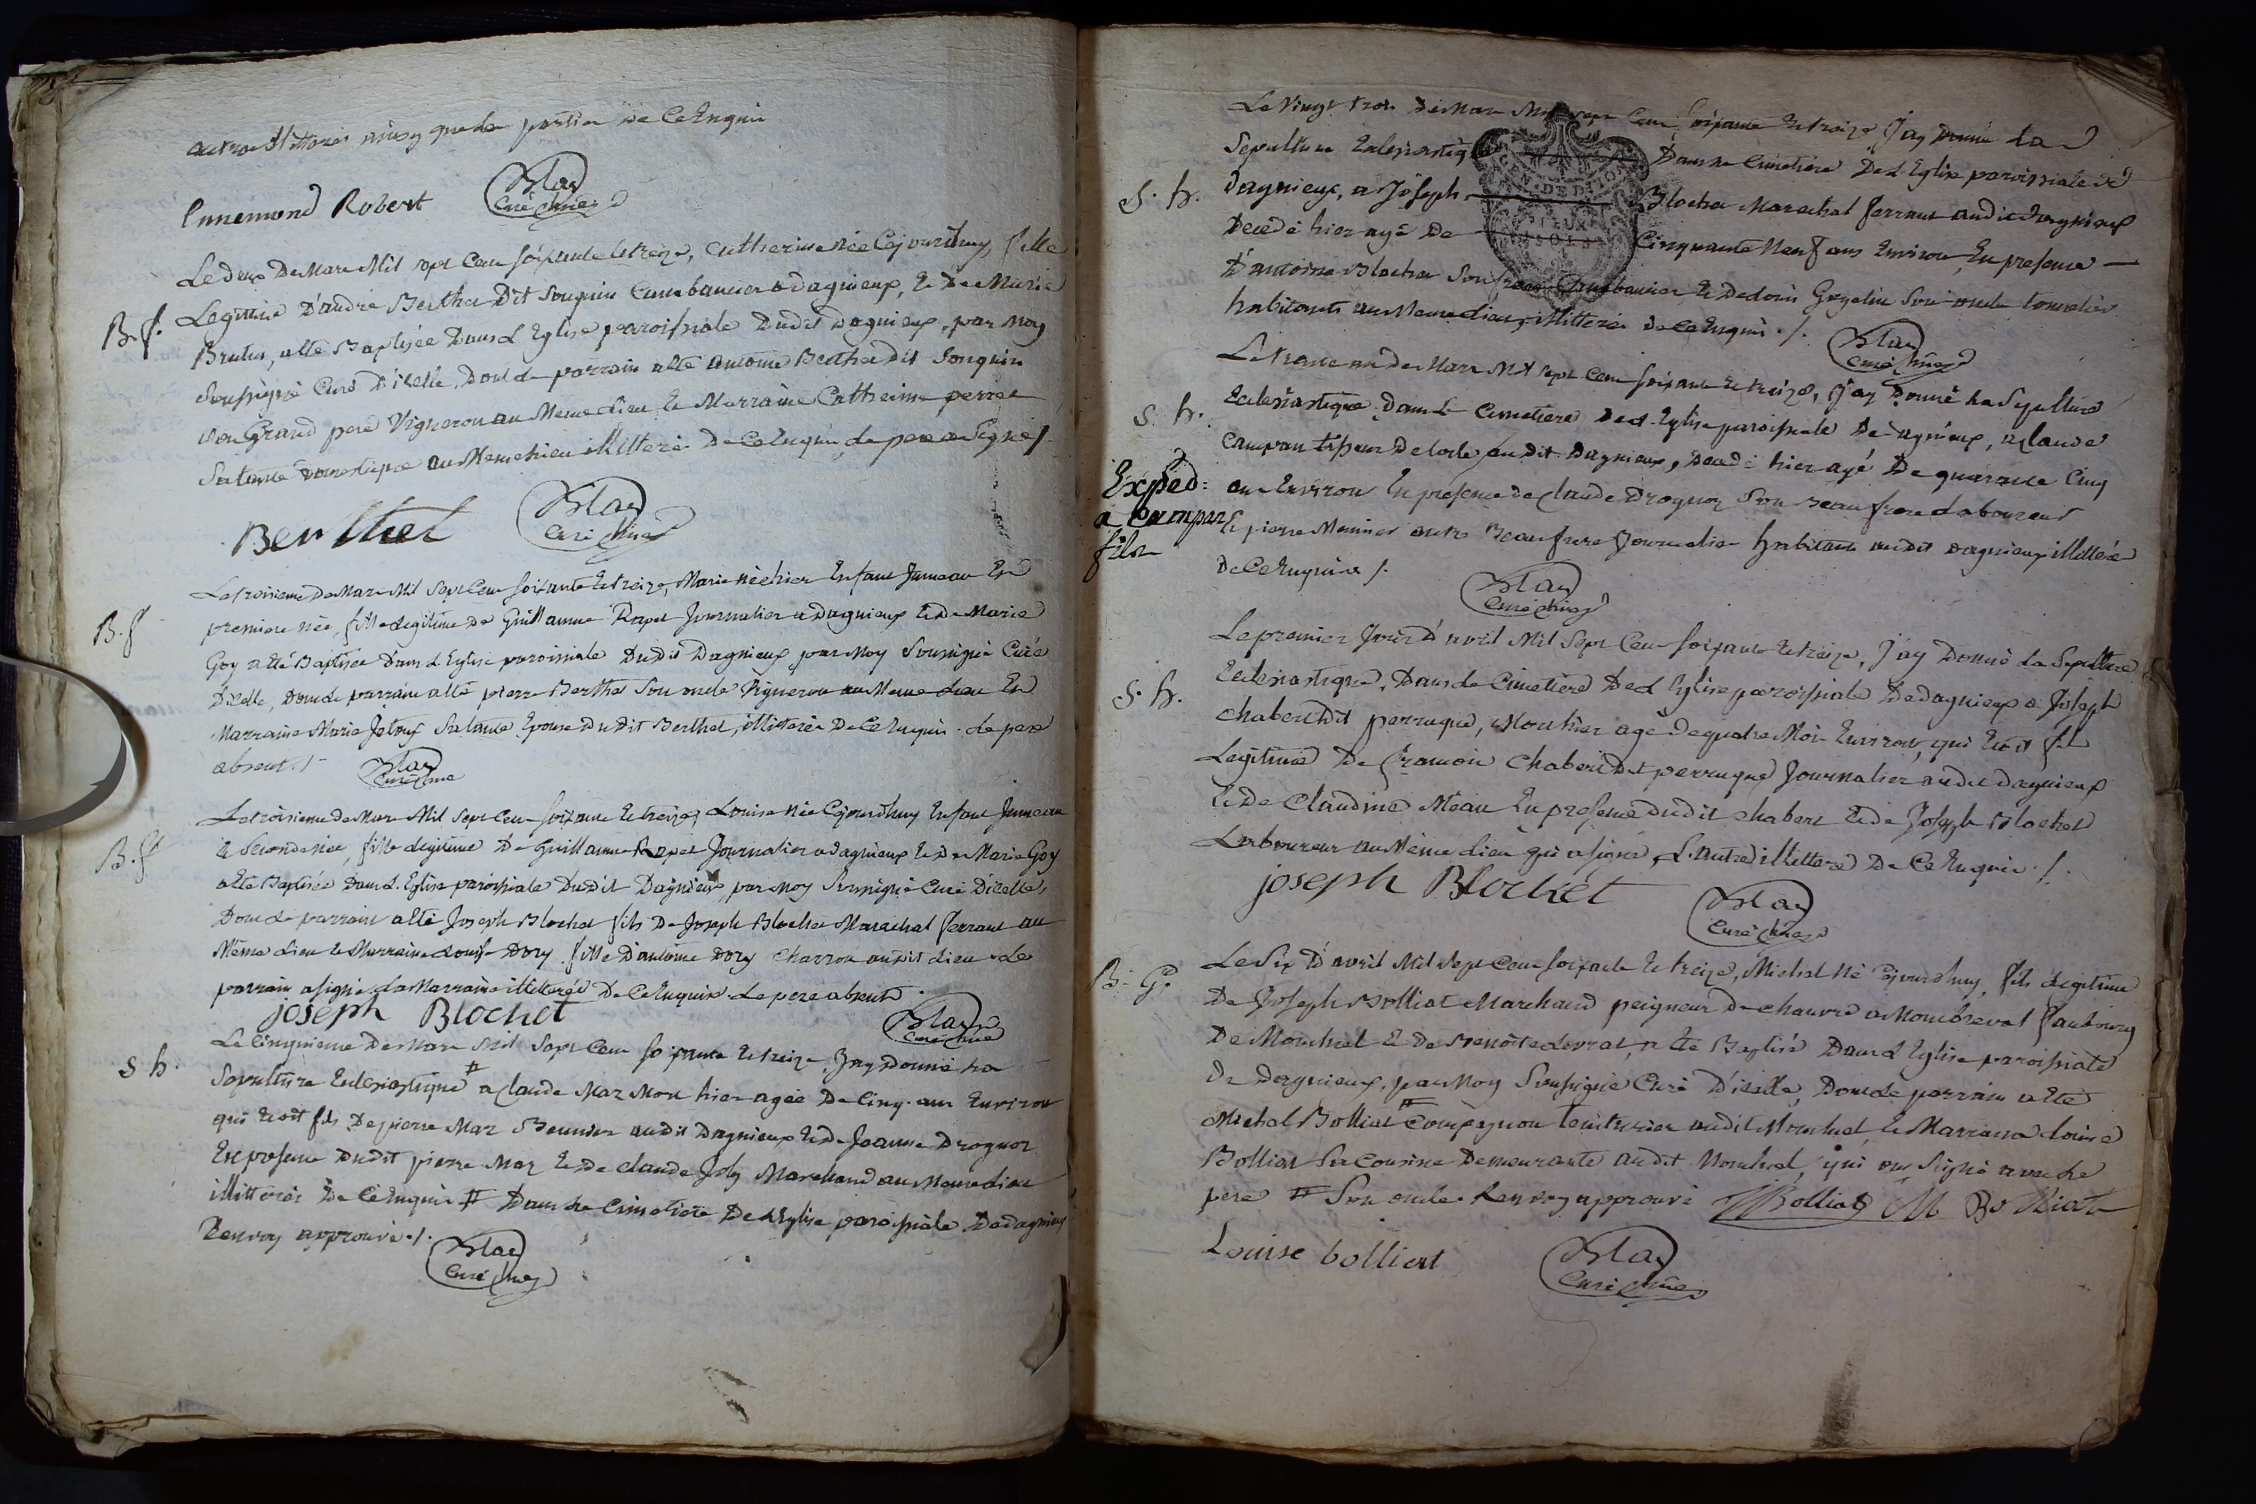 autre illitterés ainsy que la partie de ce Enquis
Ennemond Robert
Blay
Curé
Le deux De Mars Mil sept Cens soixante et treize, Catherine née Cejourdhuy, fille
B. f.
Legitime D'andré Berthet Dit Souquin Cunebancier a dagnieux, et De Marie
Brutus, a été Baptisée Dans L'Eglise paroissiale Dudit Dagnieux, par Moy
Soussigné Curé D'icelle, Dont Le parrain a été antoine Berthet dit Souquin
son Grand pere Vigneron au Meme Lieu et Marraine Catherine perret
Sa tante domestique au Meme Lieu illitterés De Ce Enquis, le pere a Signé /.
Berthet
Blay
Curé
Le troisieme De Mars Mil Sept Cens soixante et treize, Marie née hier Enfant Jumeau Et
B. f
premiere née, fille Legitime De Guillaume Rapet Journalier a Dagnieux et De Marie
Goy a été Baptisée Dans L'Eglise paroissiale Dudit Dagnieux par Moy Soussigné Curé
D'icelle, Dont Le parrain a été pierre Berthet Son oncle Vigneron au Meme Lieu Et
Marraine Marie Sa tante Epouse Dudit Berthet, illitterés De Ce Enquis. le pere
absent. /.
Blay
Curé
Le troisieme de Mars Mil Sept Cens soixante et treize, Louise née Cejourdhuy Enfant Jumeau
B. f
et Seconde née, fille Legitime De Guillaume Rapet Journalier a dagnieux et De Marie Goy
a été Baptisée Dans L'Eglise paroissiale Dudit Dagnieux par Moy Soussigné Curé D'icelle,
Dont Le parrain a été Joseph Blochet fils De Joseph Blochet Marechal ferrant au
Même Lieu et Marraine Louise Dory fille D'antoine Dory Charron audit Lieu. Le
parrain a signé, La Marraine illitterée De Ce Enquise Le pere absent.
joseph Blochet
Blay
Curé
Le Cinquieme De Mars Mil Sept Cens soixante et treize, J'ay Donné La
S h.
Sepulture Eclesiastique # a Claude Maz Mort hier agée De Cinq ans Environ
qui Etoit fils De pierre Maz Beunier audit Dagnieux et De Jeanne Drognoz
En presence Dudit pierre Maz et De Claude Joly Marchand au Meme Lieu
illitterés De Ce Enquis # Dans Le Cimetiere De L'Eglise paroissiale De dagnieux
Renvoy approuvé. /.
Blay
Curé
Le Vingt trois De Mars Mil sept Cens soixante et treize J'ay Donné La
Sepulture Eclesiastique Dans Le Cimetiere De L'Eglise paroissiale De
S. h.
dagnieux, a Joseph Blochet Marechal ferrant audit dagnieux
Decedé hier agé De Cinquante Neuf ans Environ, En presence
D'antoine Blochet Son frere Cunebancier et De Gregelin Son oncle tonnelier
habitants au Meme Lieu, illitterés De Ce Enquis. /.
Blay
Curé
Le trante un de Mars Mil sept Cens soixante et treize, J'ay Donné La Sepulture
S. h.
Eclesiastique, Dans Le Cimetiere De L'Eglise paroissiale De dagnieux, a Claude
Campan tisseur De toile audit Dagnieux, Decedé hier agé De quarante Cinq
Exped:
a Campan
fils
ans Environ En presence De Claude Drognoz Son Beaufrere Laboureur
Et pierre Meunier autre Beaufrere Journalier habitants audit dagnieux illitterés
De Ce Enquis /.
Blay
Curé
Le premier Jour D'avril Mil Sept Cens soixante et treize, J'ay Donné La Sepulture
S. h.
Eclesiastique, Dans Le Cimetiere De L'Eglise paroissiale De dagnieux a Joseph
Chabert Dit perruque, Mort hier agé De quatre Mois Environ, qui Etoit fils
Legitime De françois Chabert Dit perruque Journalier audit dagnieux
et De Claudine Méan En presence Dudit Chabert et De Joseph Blochet
Laboureur au Même Lieu qui a signé, L'autre illitteré De Ce Enquis. /.
joseph Blochet
Blay
Curé
Le Six D'avril Mil Sept Cens soixante et treize, Michel né Cejourdhuy, fils Legitime
B. G.
De Joseph Bolliat Marchand peigneur De chanvre a Montbreval fauxbourg
De Montluel et De Benoite Levrat, a été Baptisé Dans L'Eglise paroissiale
De Dagnieux, par Moy Soussigné Curé D'icelle, Dont Le parrain a été
Michel Bolliat # Compagnon teinturier audit Montluel, et Marraine Louise
Bolliat Sa Cousine Demeurante audit Montluel, qui ont Signé avec Le
pere # Son oncle Renvoy approuvé JBolliat M Bolliat
Louise bolliat
Blay
Curé